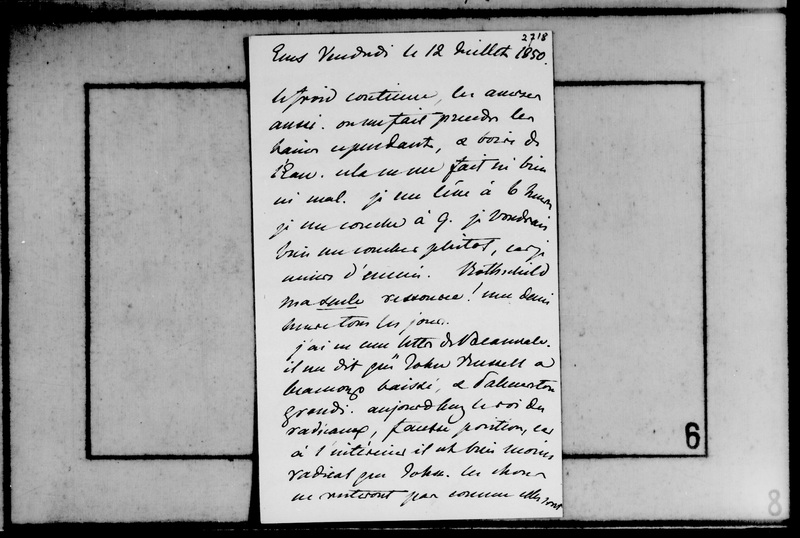 2718
Ems Vendredi le 12 Juillet 1850.
le froid continue, les averses
aussi. on me fait prendre les
bains cependant, & boire de
l'Eau. cela ne me fait ni bien
ni mal. je me lève à 6 heures
je me couche à 9. je voudrais
bien me coucher plutot, car je
meurs d'ennui. Rothschild
ma seule ressource! une demi
heure tous les jours.
j'ai eu une lettre de
il me dit que John Russell a
beaucoup baissé, & Palmerston
grandi. aujourd'huy le roi des
radicaux, fausse position, car
à l'intérieur il est bien moins
radical que John. les choses
ne resteront pas comme elles sont
6
8